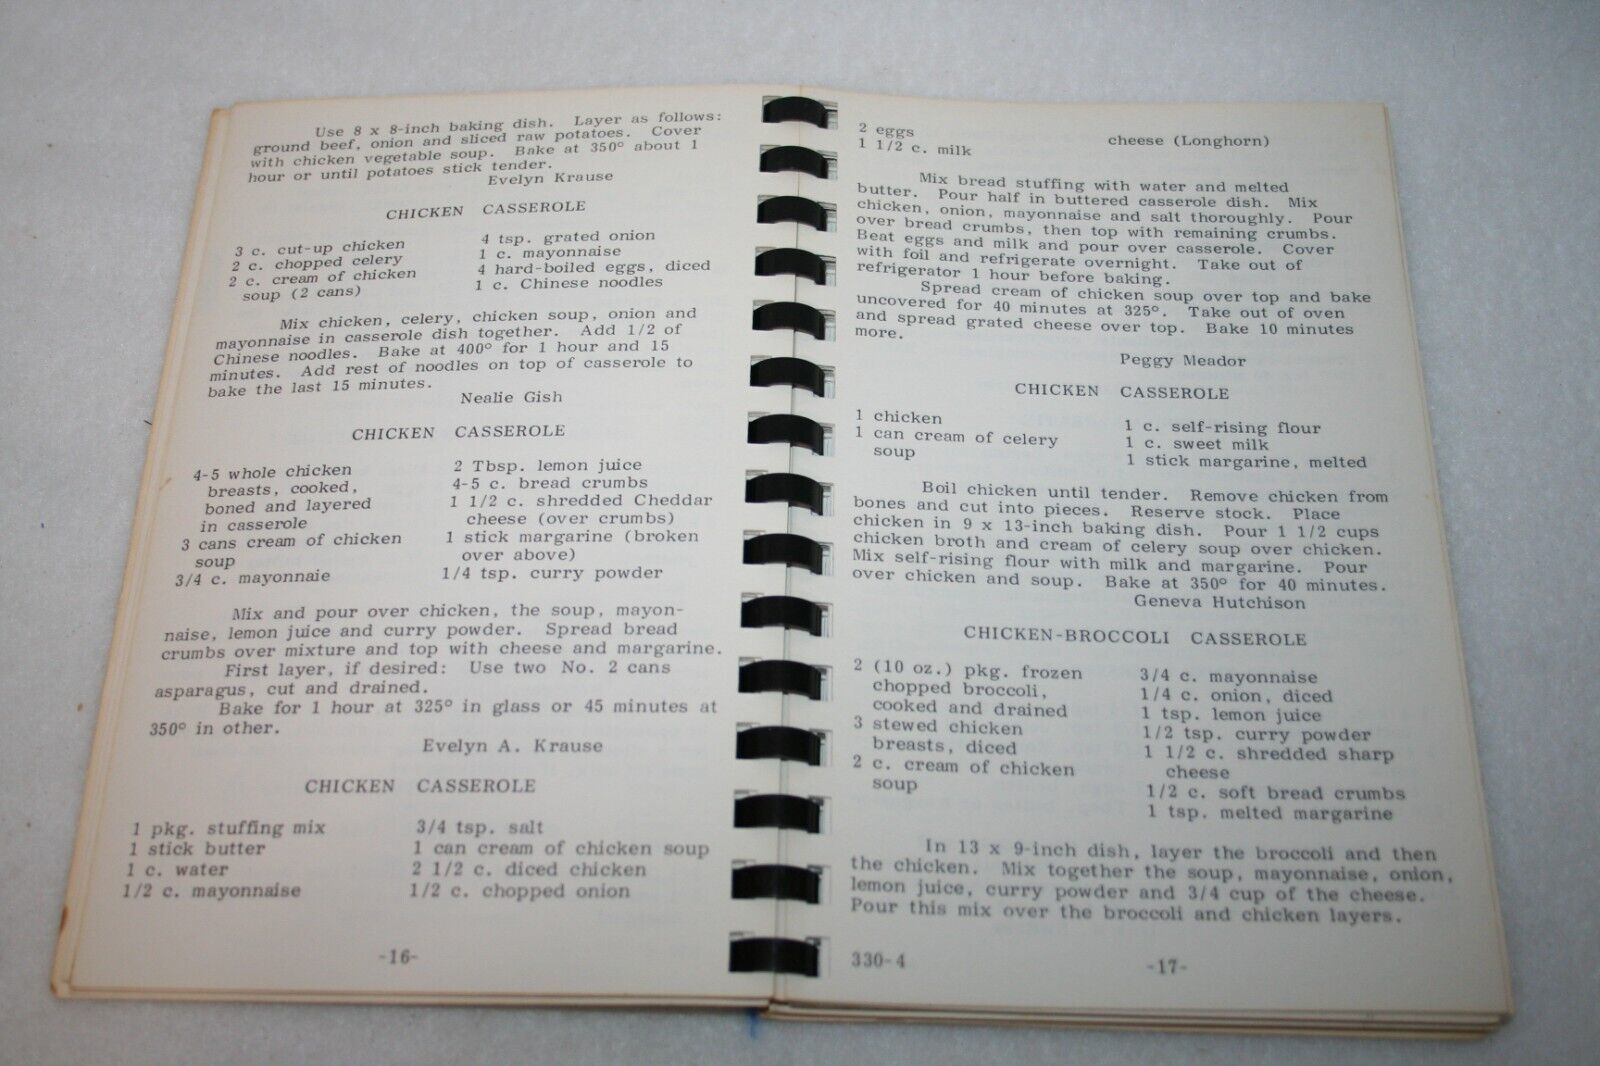 Use 8 x 8-inch baking dish. Layer as follows:
ground beef, onion and sliced raw potatoes. Cover
with chicken vegetable soup. Bake at 350° about 1
hour or until potatoes stick tender.
Evelyn Krause
CHICKEN CASSEROLE
3 c. cut-up chicken
2 c. chopped celery
2 c. cream of chicken
soup (2 cans)
4 tsp. grated onion
1 c. mayonnaise
4 hard-boiled eggs, diced
1 c. Chinese noodles
Mix chicken, celery, chicken soup, onion and
mayonnaise in casserole dish together. Add 1/2 of
Chinese noodles. Bake at 400° for 1 hour and 15
minutes. Add rest of noodles on top of casserole to
bake the last 15 minutes.
Nealie Gish
CHICKEN CASSEROLE
4-5 whole chicken
breasts, cooked,
boned and layered
in casserole
3 cans cream of chicken
soup
3/4 c. mayonnaie
2 Tbsp. lemon juice
4-5 c. bread crumbs
1 1/2 c. shredded Cheddar
cheese (over crumbs)
1 stick margarine (broken
over above)
1/4 tsp. curry powder
Mix and pour over chicken, the soup, mayon-
naise, lemon juice and curry powder. Spread bread
crumbs over mixture and top with cheese and margarine.
First layer, if desired: Use two No. 2 cans
asparagus, cut and drained.
Bake for 1 hour at 325° in glass or 45 minutes at
350° in other.
Evelyn A. Krause
CHICKEN CASSEROLE
1 pkg. stuffing mix
1 stick butter
1 c. water
1/2 c. mayonnaise
3/4 tsp. salt
1 can cream of chicken soup
2 1/2 c. diced chicken
1/2 c. chopped onion
-16-
2 eggs
1 1/2 c. milk
cheese (Longhorn)
Mix bread stuffing with water and melted
butter. Pour half in buttered casserole dish. Mix
chicken, onion, mayonnaise and salt thoroughly. Pour
over bread crumbs, then top with remaining crumbs.
Beat eggs and milk and pour over casserole. Cover
with foil and refrigerate overnight. Take out of
refrigerator 1 hour before baking.
Spread cream of chicken soup over top and bake
uncovered for 40 minutes at 325°. Take out of oven
and spread grated cheese over top. Bake 10 minutes
more.
Peggy Meador
CHICKEN CASSEROLE
1 chicken
1 can cream of celery
soup
1 c. self-rising flour
1 c. sweet milk
1 stick margarine, melted
Boil chicken until tender. Remove chicken from
bones and cut into pieces. Reserve stock. Place
chicken in 9 x 13-inch baking dish. Pour 1 1/2 cups
chicken broth and cream of celery soup over chicken.
Mix self-rising flour with milk and margarine. Pour
over chicken and soup. Bake at 350° for 40 minutes.
Geneva Hutchison
CHICKEN-BROCCOLI CASSEROLE
2 (10 oz.) pkg. frozen
chopped broccoli,
cooked and drained
3 stewed chicken
breasts, diced
2 c. cream of chicken
soup
3/4 c. mayonnaise
1/4 c. onion, diced
1 tsp. lemon juice
1/2 tsp. curry powder
1 1/2 c. shredded sharp
cheese
1/2 c. soft bread crumbs
1 tsp. melted margarine
In 13 x 9-inch dish, layer the broccoli and then
the chicken. Mix together the soup, mayonnaise, onion,
lemon juice, curry powder and 3/4 cup of the cheese.
Pour this mix over the broccoli and chicken layers.
330-4
-17-